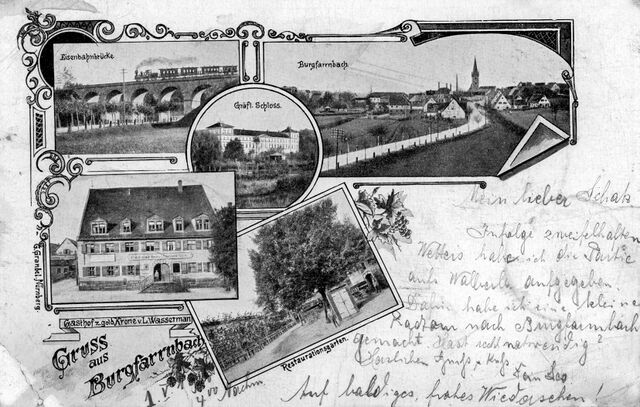 Eisenbahnbrücke
Burgfarrnbach.
Gräfl. Schloss.
G. Grambel, Nürnberg.
Gasthof z. gold. Krone v. L. Wasserman
Restaurationsgarten.
Gruss
aus
Burgfarrnbach
Mein lieber Schatz
Infolge zweifelhaften
Wetters habe ich die Partie
aufs Walberla aufgegeben
Dafür habe ich eine kleine
nach Burgfarrnbach
gemacht. Hast
Herzlichen Gruß u. Kuß
Dein Leo
Auf baldiges, frohes Wiedersehen!